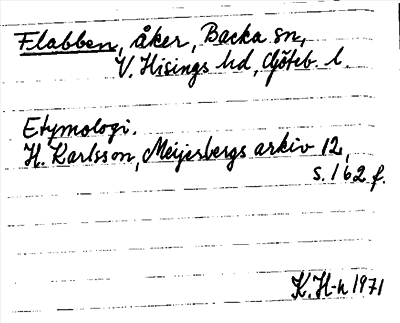 Flabben, åker, Backa sn,
V. Hisings hd, Göteb. l
Etymologi.
H. Karlsson, Meijerbergs arkiv 12,
s. 162 f.
K. H-n 1971